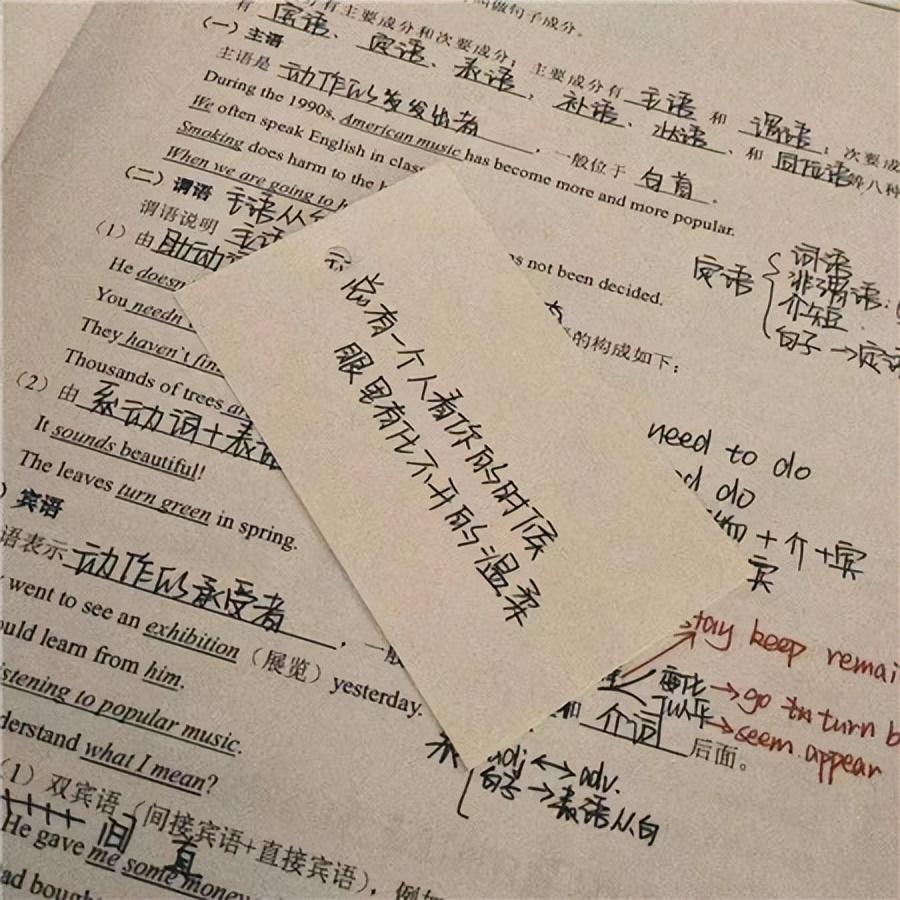 叫做句子成分。
有主要成分和次要成分；主要成分有 主语 和 谓语；次要成
有 宾语、定语、表语、补语、状语、和 同位语等八种
（一）主语
主语是 动作的发出者，一般位于 句首。
During the 1990s, American music has become more and more popular.
We often speak English in class
Smoking does harm to the
When we are going to h
s not been decided.
（二）谓语 主语从句
谓语说明 主语
的构成如下：
（1）由助动词
He doesn
You needn
They haven't fin
Thousands of trees ar
（2）由 系动词+表语
It sounds beautiful!
The leaves turn green in spring.
宾语
语表示 动作的承受者，一般
went to see an exhibition（展览）yesterday.
ould learn from him.
stening to popular music.
derstand what I mean?
和 介词 后面。
（1）双宾语（间接宾语+直接宾语），例如
间 直
He gave me some money
ad bough
定语
词语
非谓语：
介短
句子→定语
need to do
do
+介+宾
宾
tay keep remai
变化→go turn b
似乎→seem appear
adj↔adv.
句子→表语从句
总有一个人看你的时候
眼里有化不开的温柔